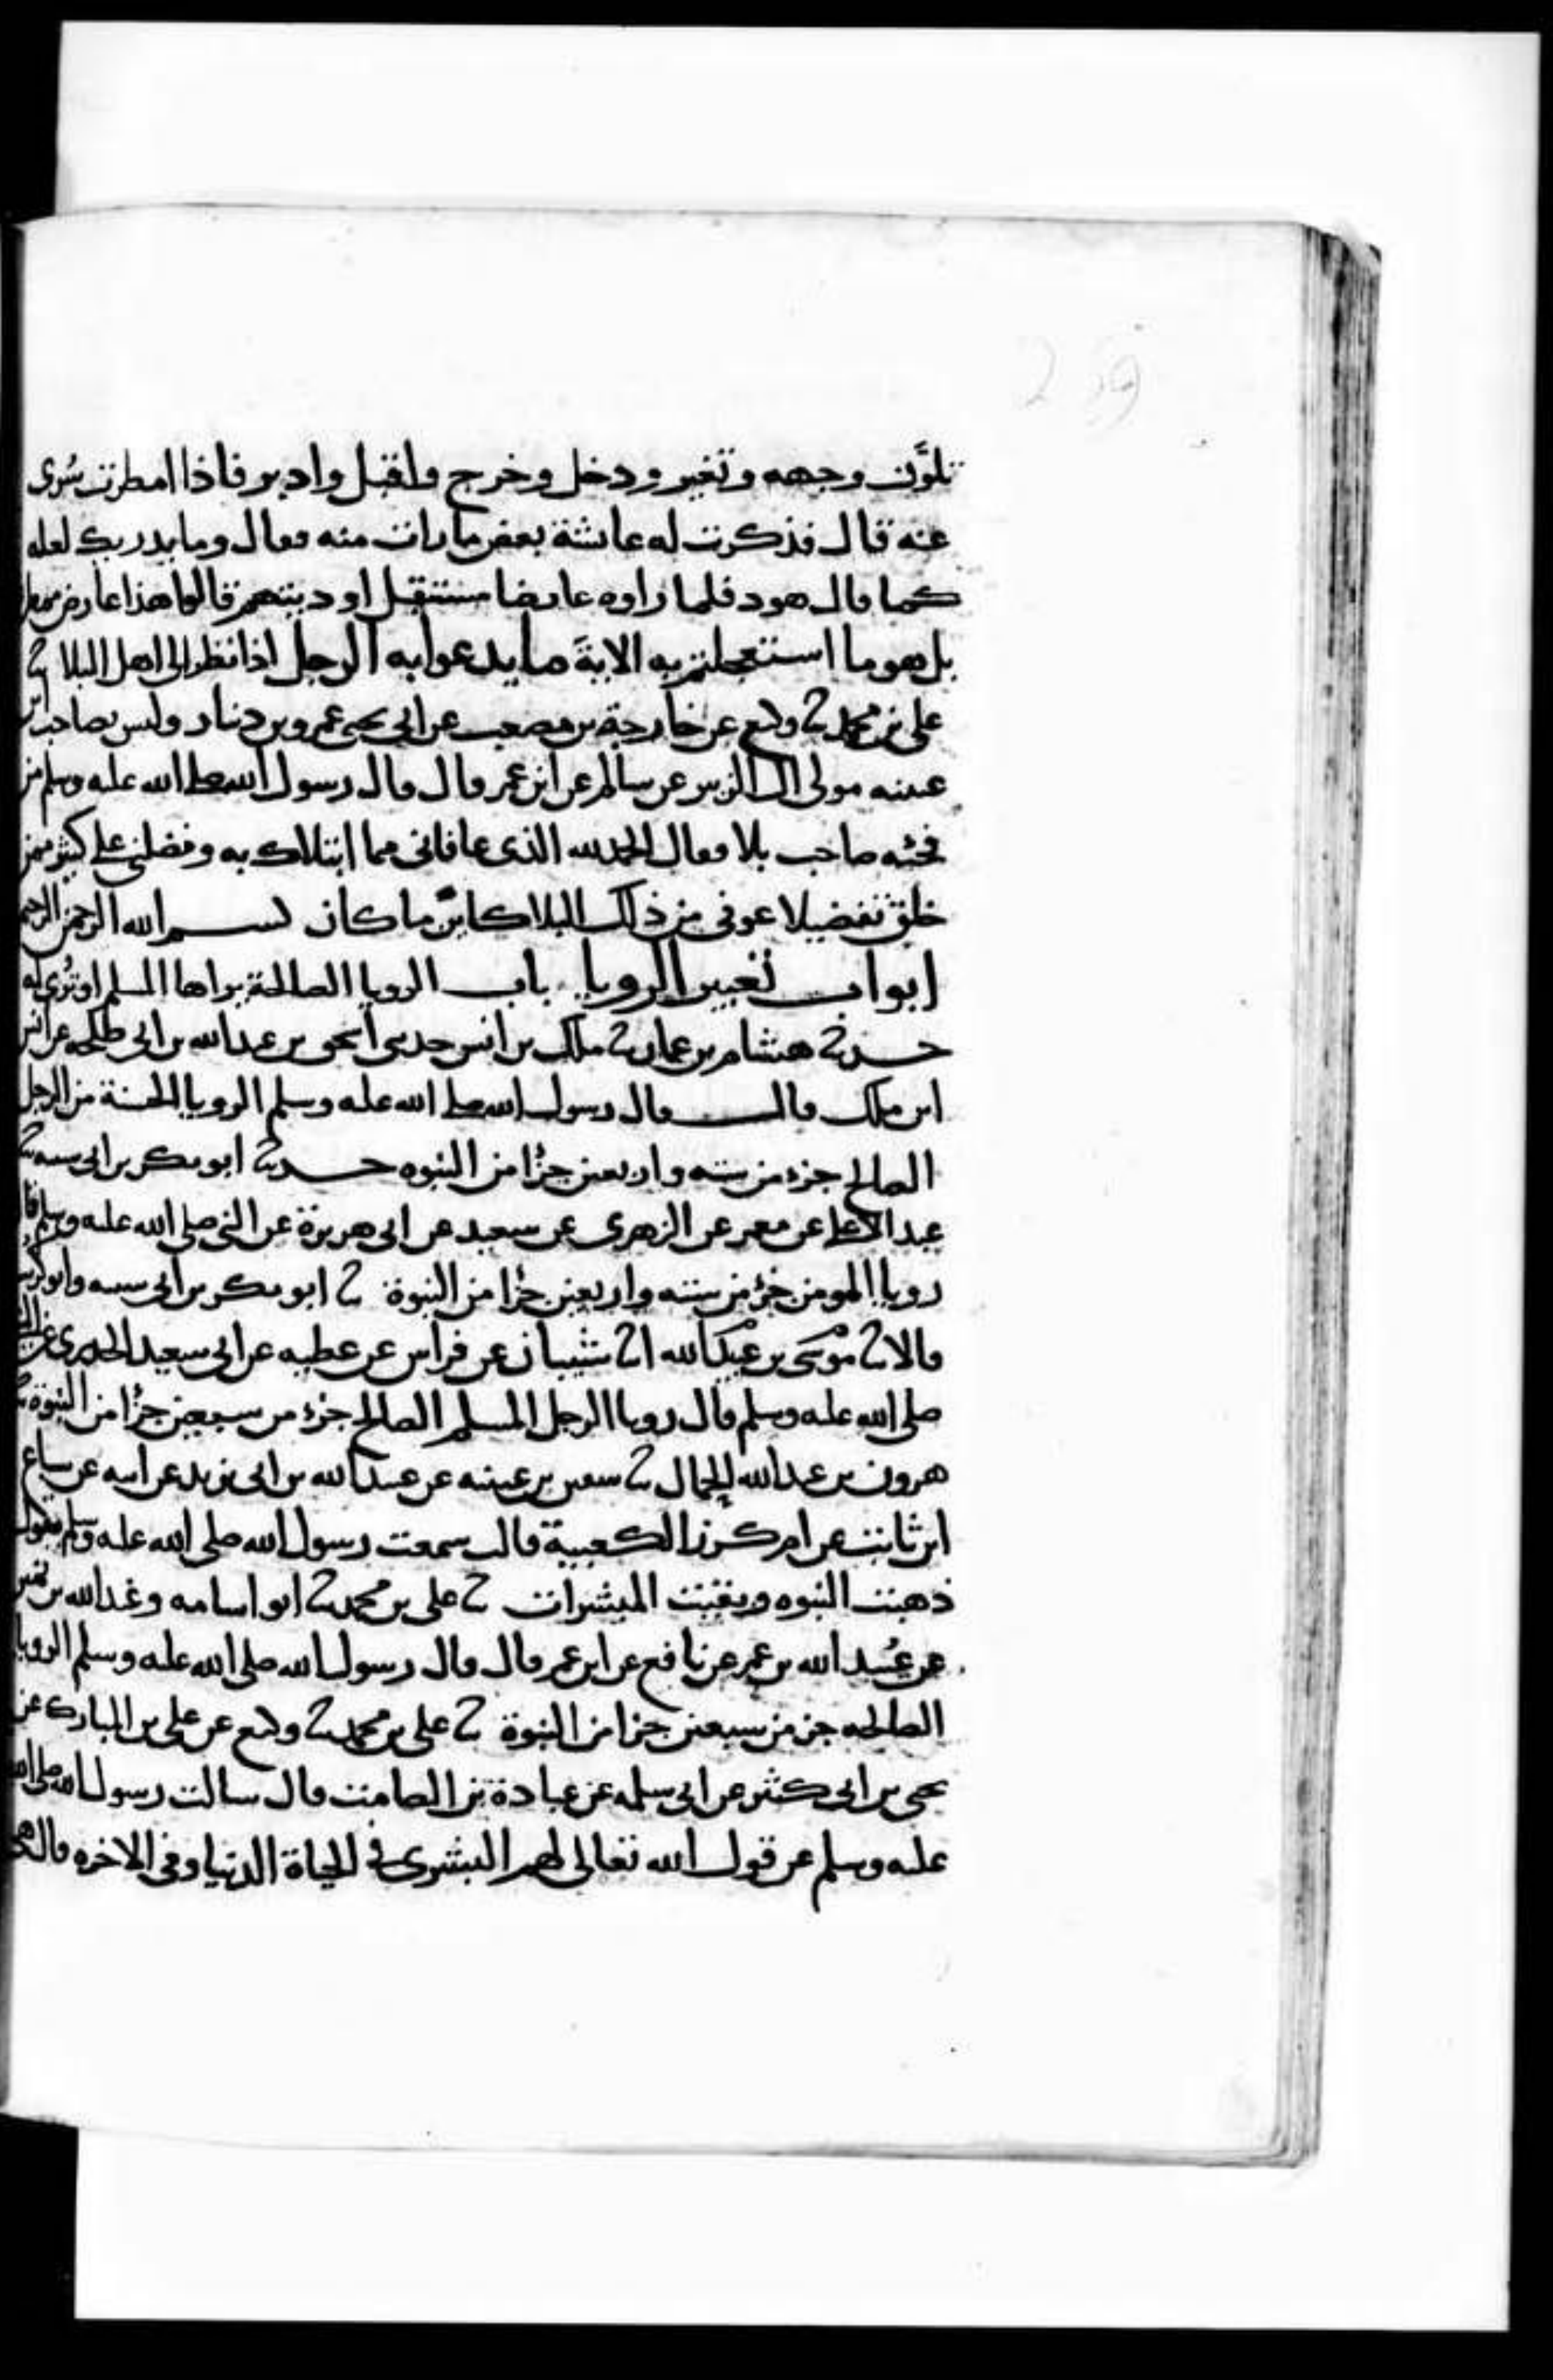 239
تلوَّن وجهه وتغير ودخل وخرج واقبل وادبر فاذا امطرت سُرى
عنه قال فذكرت له عائشة بعض ما رات منه فقال وما يدريك لعله
كما قال هود فلما راوه عارضا مستقبل اوديتهم قالوا هذا عارض ممطرنا
بل هو ما استعجلتم به الايةَ ما يدعوا به الرجل اذا نظر الى اهل البلا ثنا
على بن محمد ثنا وكيع عن خارجة بن مصعب عن ابى يحيى عمرو بن دينار وليس بصاحب ابن
عيينه مولى ال الزبير عن سالم عن ابن عمر قال قال رسول الله صلى الله عليه وسلم من
فجئه صاحب بلا فقال الحمد لله الذى عافانى مما ابتلاك به وفضلنى على كثير ممن
خلق تفضيلا عوفى من ذلك البلا كاينًا ما كان بسم الله الرحمن الرحيم
ابواب تعبير الرويا باب الرويا الصالحة يراها المسلم او تُرى له
حدثنا هشام بن عمار ثنا ملك بن انس حدثنى اسحق بن عبد الله بن ابى طلحه عن انس
ابن ملك قال قال رسول الله صلى الله عليه وسلم الرويا الحسنة من الرجل
الصالح جزء من سته واربعين جزُا من النبوه حدثنا ابو بكر بن ابى شيبه ثنا
عبد الاعلى عن معمر عن الزهرى عن سعيد عن ابى هريرة عن النبى صلى الله عليه وسلم قال
رويا المومن جزء من سته واربعين جزُا من النبوة ثنا ابو بكر بن ابى شيبه وابو كريب
قالا ثنا موسَى بن عبيد الله انا شيبان عن فراس عن عطيه عن ابى سعيد الخدرى عن النبى
صلى الله عليه وسلم قال رويا الرجل المسلم الصالح جزء من سبعين جزُا من النبوة ثنا
هرون بن عبد الله الحمال ثنا سفين بن عيينه عن عبيد الله بن ابى يزيد عن ابيه عن سباع
ابن ثابت عن ام كرز الكعبية قالت سمعت رسول الله صلى الله عليه وسلم يقول
ذهبت النبوه وبقيت المبشرات ثنا على بن محمد ثنا ابو اسامه وعبد الله بن نمير
عن عُبيد الله بن عمر عن نافع عن ابن عمر قال قال رسول الله صلى الله عليه وسلم الرويا
الصالحه جز من سبعين جزا من النبوة ثنا على بن محمد ثنا وكيع عن على بن المبارك عن
يحيى بن ابى كثير عن ابى سلمه عن عبادة بن الصامت قال سالت رسول الله صلى الله
عليه وسلم عن قول الله تعالى لهم البشرى فى الحياة الدنيا وفى الاخره قال هى